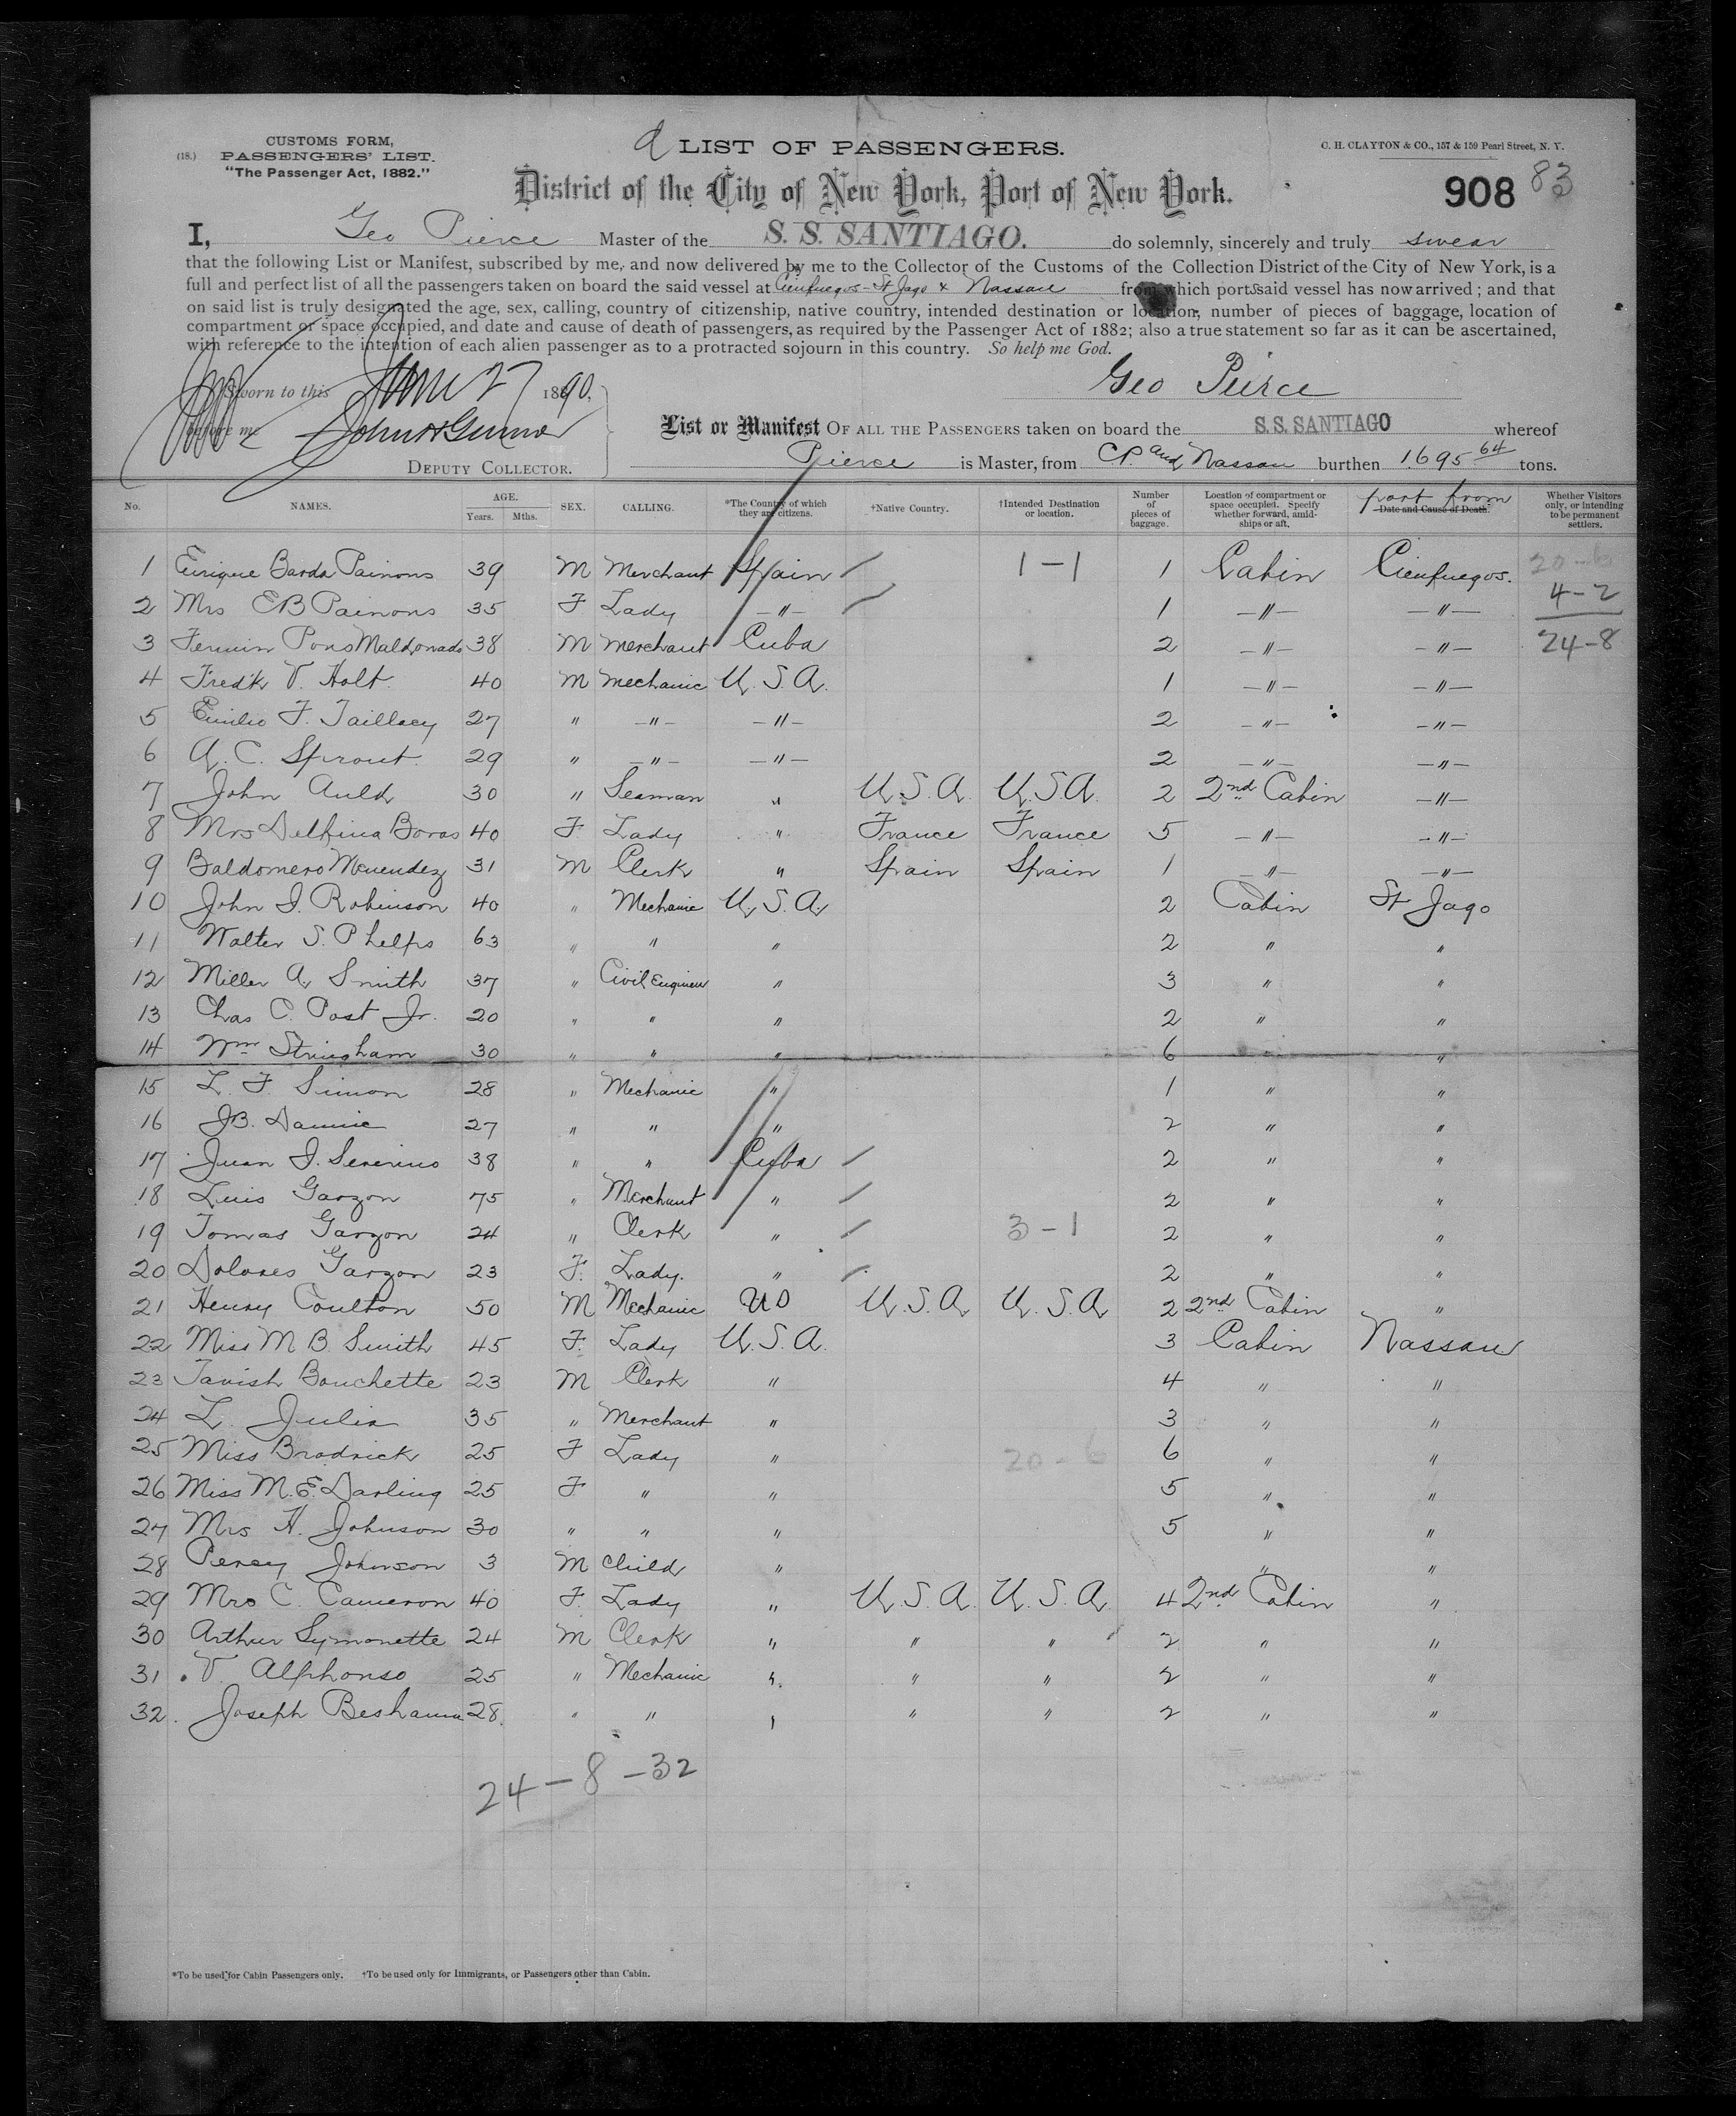 CUSTOMS FORM,
(18.) PASSENGERS' LIST.
"The Passenger Act, 1882."
a LIST OF PASSENGERS.
C. H. CLAYTON & CO., 157 & 159 Pearl Street, N. Y.
District of the City of New York, Port of New York.
908 83
I, Geo Pierce Master of the S. S. SANTIAGO. do solemnly, sincerely and truly swear
that the following List or Manifest, subscribed by me, and now delivered by me to the Collector of the Customs of the Collection District of the City of New York, is a
full and perfect list of all the passengers taken on board the said vessel at Cienfuegos - St Jago & Nassau from which ports said vessel has now arrived; and that
on said list is truly designated the age, sex, calling, country of citizenship, native country, intended destination or location, number of pieces of baggage, location of
compartment or space occupied, and date and cause of death of passengers, as required by the Passenger Act of 1882; also a true statement so far as it can be ascertained,
with reference to the intention of each alien passenger as to a protracted sojourn in this country. So help me God.
Sworn to this 27 1890,
Geo Pierce
before me John
DEPUTY COLLECTOR.
List or Manifest OF ALL THE PASSENGERS taken on board the S. S. SANTIAGO whereof
Pierce is Master, from and Nassau burthen 1695 64 tons.
No. NAMES. AGE. Years. Mths. SEX. CALLING. *The Country of which they are citizens. †Native Country. †Intended Destination or location. Number of pieces of baggage. Location of compartment or space occupied. Specify whether forward, amidships or aft. Date and Cause of Death. part from Whether Visitors only, or intending to be permanent settlers.
1 Enrique Barda Painons 39 M Merchant Spain / 1-1 1 Cabin Cienfuegos. 20-6
2 Mrs EB Painons 35 F Lady -"- / 1 -"- -"- 4-2
3 Fermin Pons Maldonado 38 M Merchant Cuba 2 -"- -"- 24-8
4 Fredk V. Holt. 40 M Mechanic U.S.A. 1 -"- -"-
5 Emilio F. Taillacy 27 " -"- -"- 2 -"- -"-
6 A. C. Sprout. 29 " -"- -"- 2 -"- -"-
7 John Auld 30 " Seaman " U.S.A. U.S.A. 2 2nd Cabin -"-
8 Mrs Delfina Boras 40 F. Lady " France France 5 -"- -"-
9 Baldomero Menendez 31 M Clerk " Spain Spain 1 -"- -"-
10 John I. Robinson 40 " Mechanic U.S.A. 2 Cabin St Jago
11 Walter S. Phelps 63 " " " 2 " "
12 Miller A. Smith 37 " Civil Engineer " 3 " "
13 Chas C. Post Jr. 20 " " " 2 " "
14 Wm Stringham 30 " " " 6 " "
15 L. F. Simon 28 " Mechanic " 1 " "
16 J.B. 27 " " " 2 " "
17 Juan I. Severino 38 " " Cuba / 2 " "
18 Luis Garzon 75 " Merchant " / 2 " "
19 Tomas Garzon 24 " Clerk " / 3-1 2 " "
20 Dolores Garzon 23 F. Lady. " / 2 " "
21 Henry Coulton 50 M Mechanic US U.S.A. U.S.A. 2 2nd Cabin "
22 Miss M B. Smith 45 F. Lady U.S.A. 3 Cabin Nassau
23 Tavish Bouchette 23 M Clerk " 4 " "
24 L. Julia 35 " Merchant " 3 " "
25 Miss Brodrick 25 F Lady " 20-6 6 " "
26 Miss M.E. Darling 25 F " " 5 " "
27 Mrs H. Johnson 30 " " " 5 " "
28 Percy Johnson 3 M Child " " "
29 Mrs C. Cameron 40 F. Lady " U.S.A. U.S.A. 4 2nd Cabin "
30 Arthur Symonette 24 M Clerk " " " 2 " "
31 V Alphonso 25 " Mechanic " " " 2 " "
32 Joseph 28 " " " " " 2 " "
24-8-32
*To be used for Cabin Passengers only. †To be used only for Immigrants, or Passengers other than Cabin.